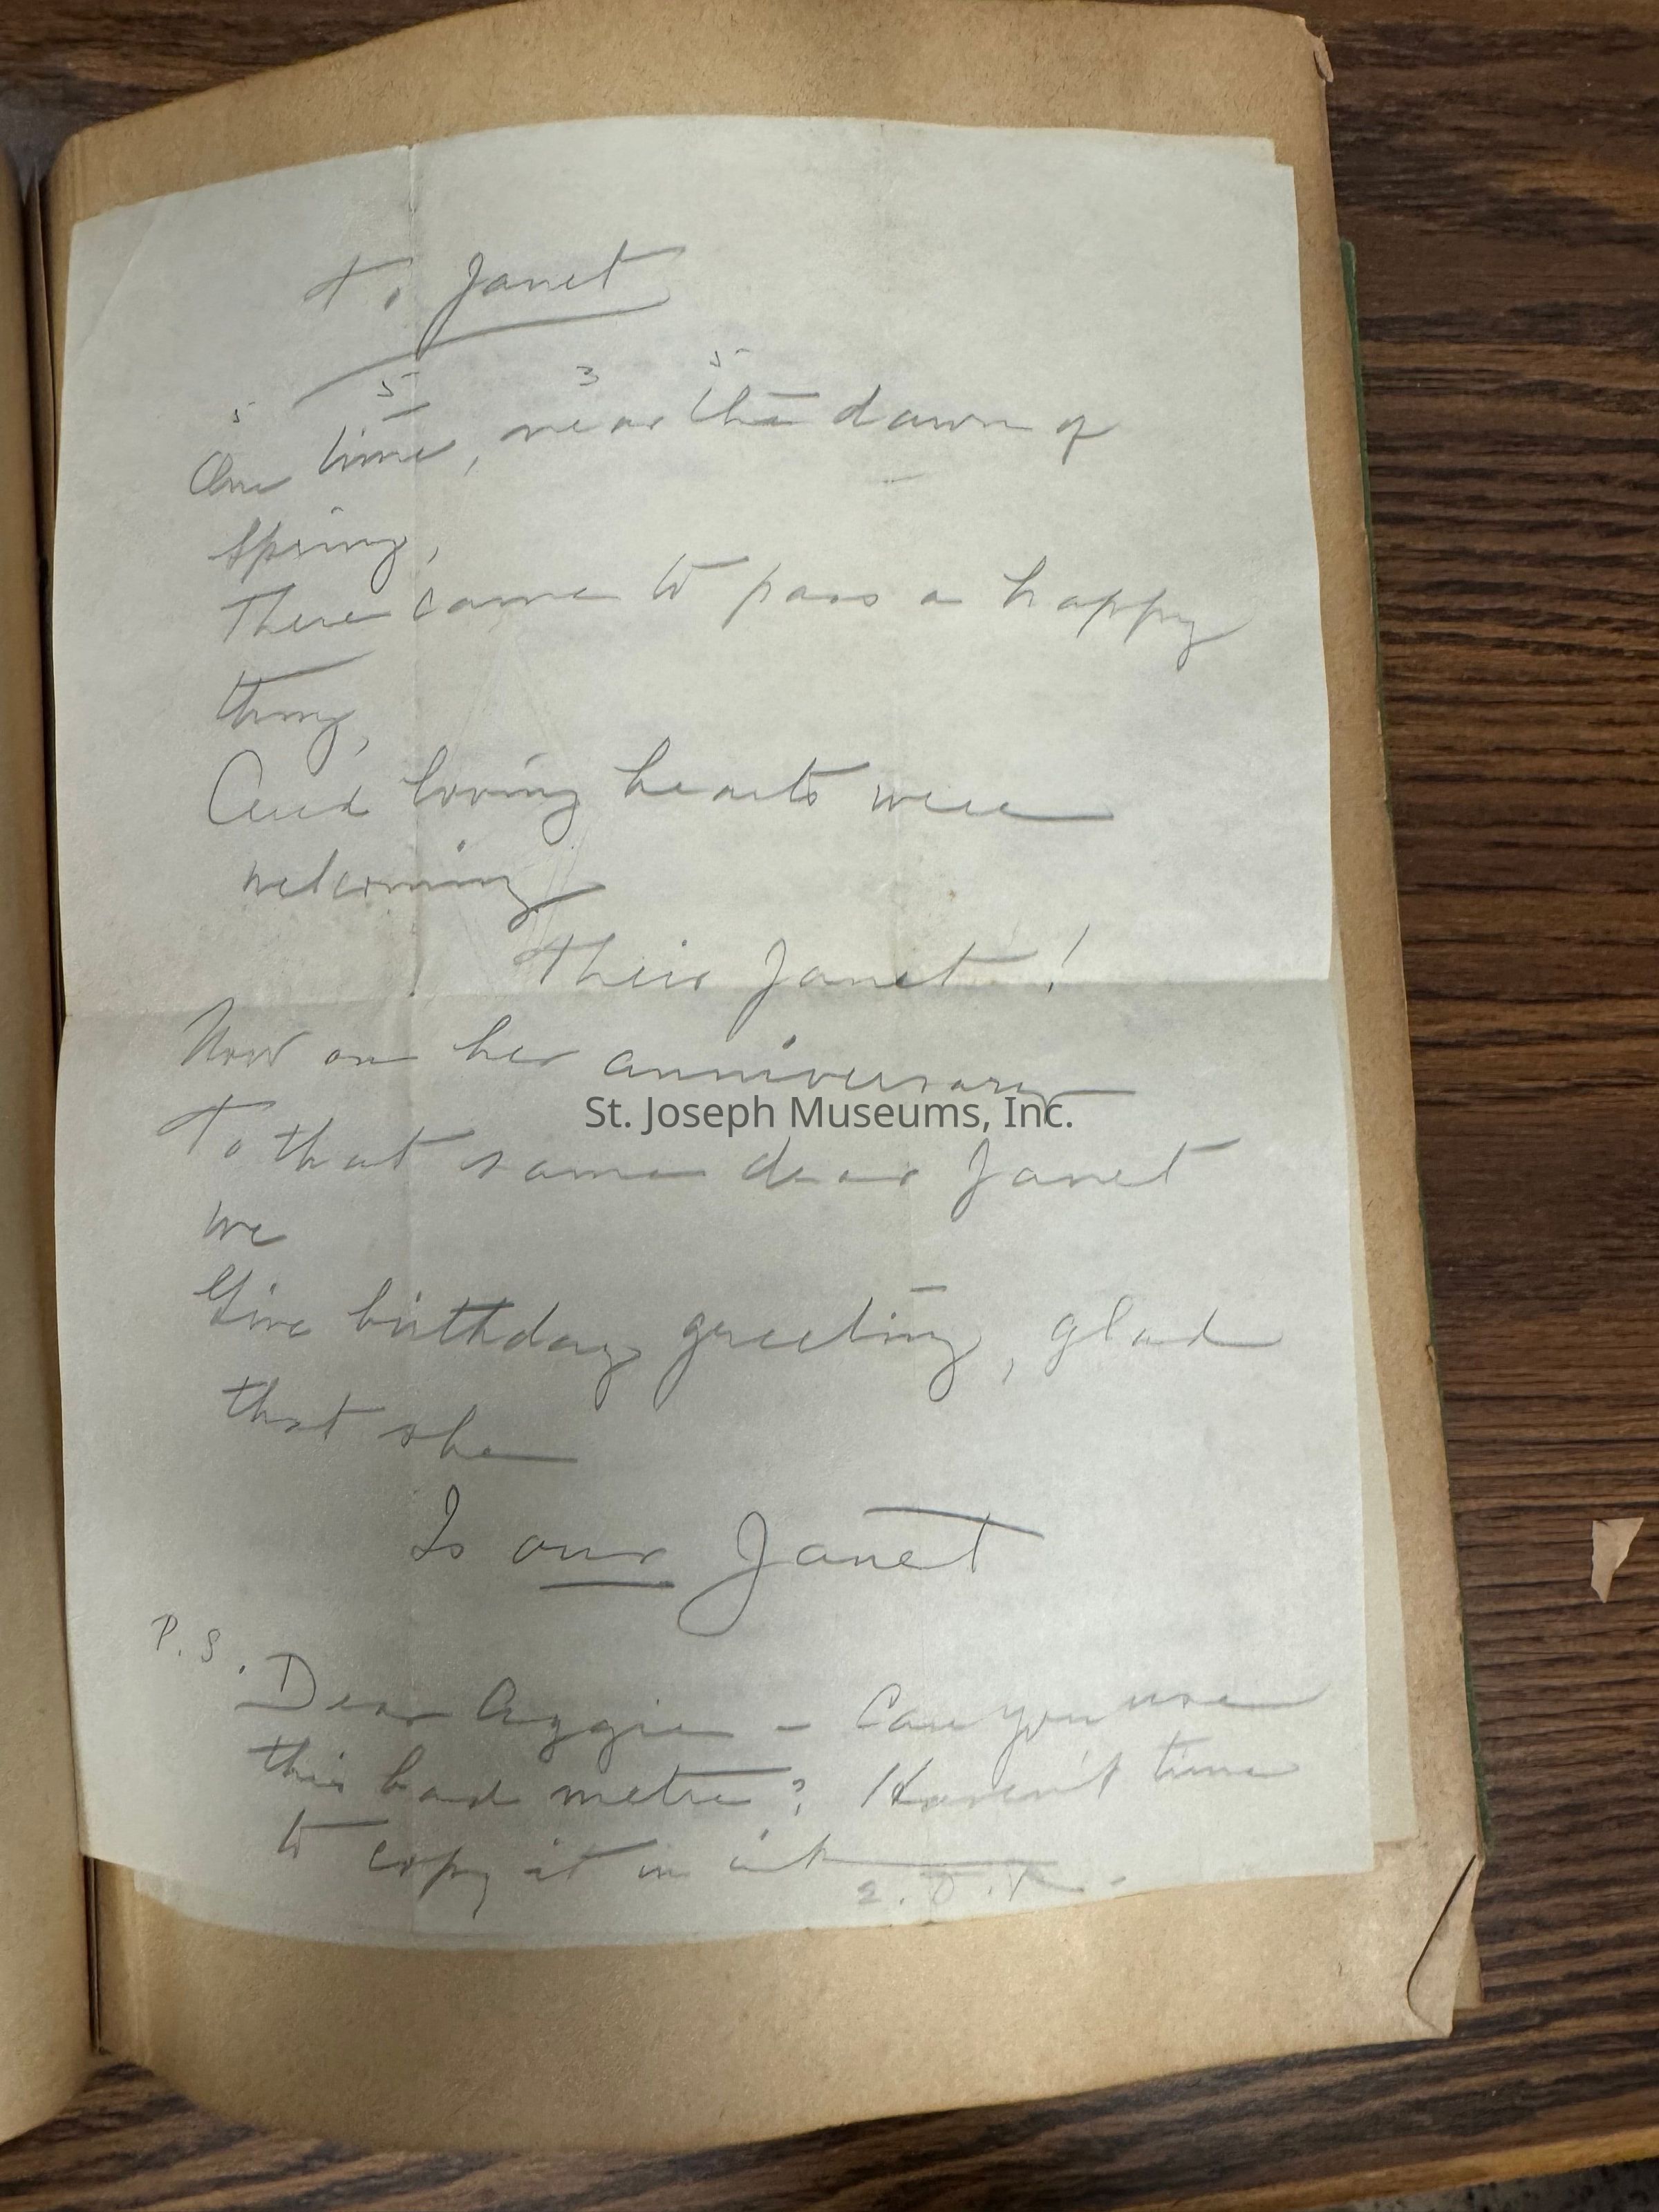 To Janet
5 5 3 5
One time, near the dawn of
spring,
There came to pass a happy
thing,
And loving hearts were
welcoming
Their Janet!
Now on her anniversary
St. Joseph Museums, Inc.
To that same dear Janet
we
Give birthday greeting, glad
that she
Is our Janet
P.S.
Dear Aggie – Can you use
this bad metre? Haven't time
to copy it in ink